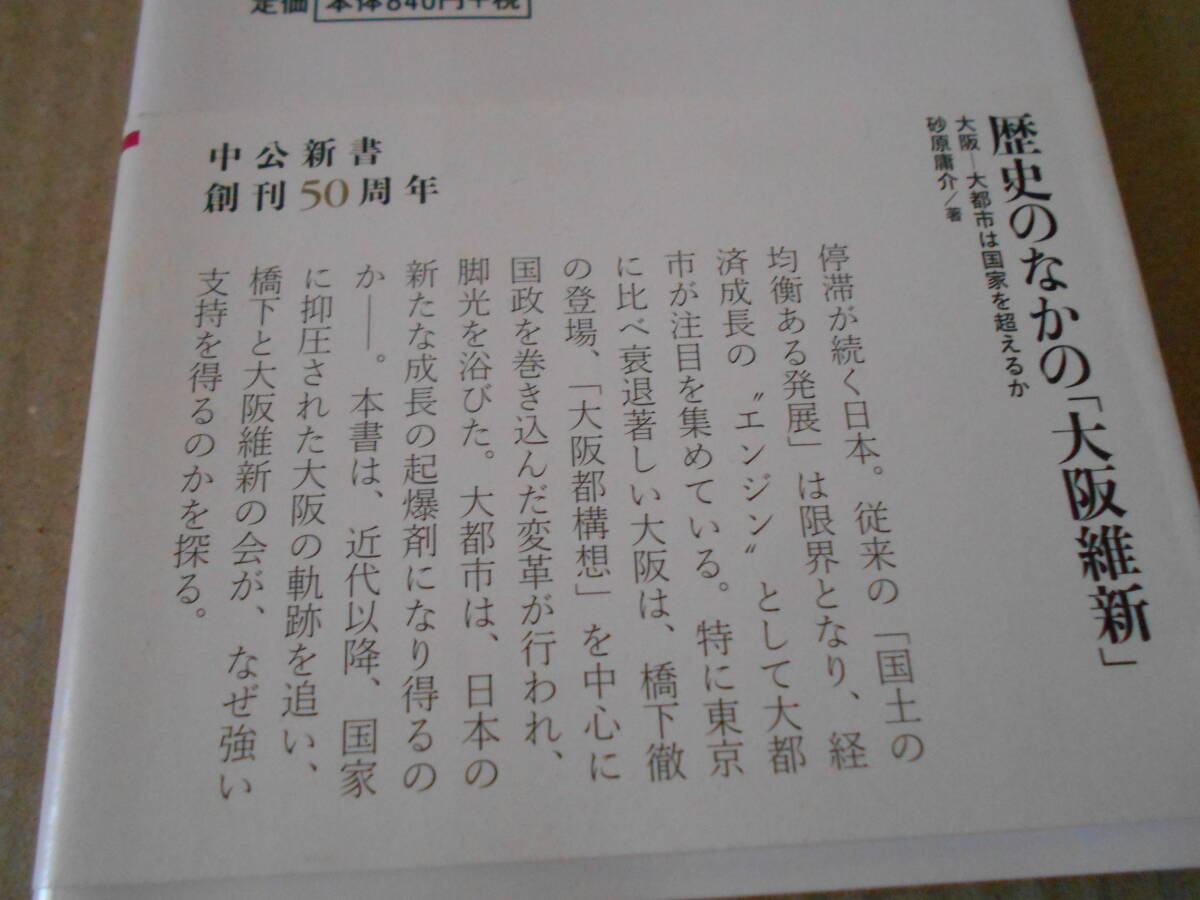 定価 本体840円+税
歴史のなかの「大阪維新」
大阪―大都市は国家を超えるか
砂原庸介/著
中公新書
創刊50周年
停滞が続く日本。従来の「国土の
均衡ある発展」は限界となり、経
済成長の〝エンジン〟として大都
市が注目を集めている。特に東京
に比べ衰退著しい大阪は、橋下徹
の登場、「大阪都構想」を中心に
国政を巻き込んだ変革が行われ、
脚光を浴びた。大都市は、日本の
新たな成長の起爆剤になり得るの
か――。本書は、近代以降、国家
に抑圧された大阪の軌跡を追い、
橋下と大阪維新の会が、なぜ強い
支持を得るのかを探る。